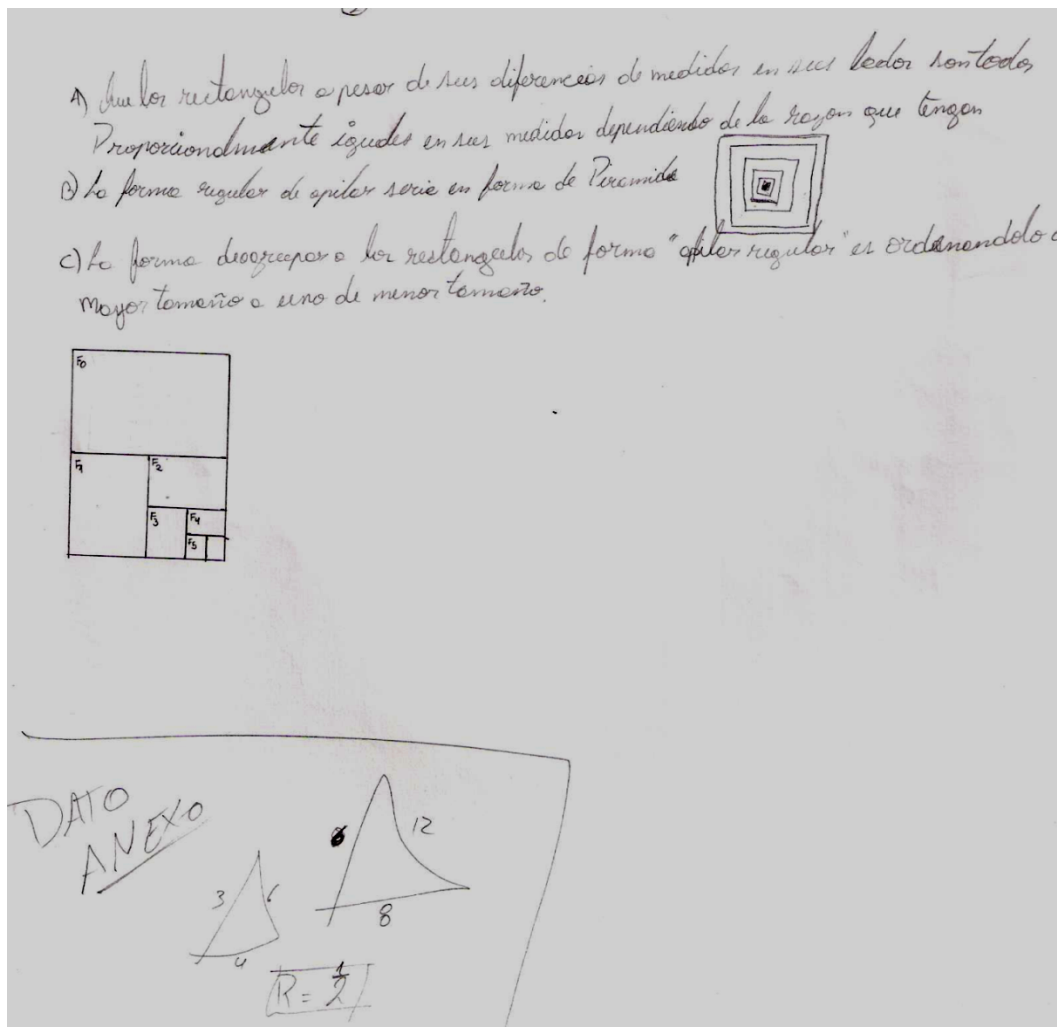 A) Que los rectangulos a pesar de sus diferencias de medidas en sus lados son todos
Proporcionalmente iguales en sus medidas dependiendo de la razon que tengan
B) La forma regular de apilar seria en forma de Piramide
C) La forma de agrupar a los rectangulos de forma "apilar regular" es ordenandolo
Mayor tamaño a uno de menor tamaño.
F0
F1 F2
F3 F4
F5
DATO
ANEXO
12
3 6
8
4
R = 1/2